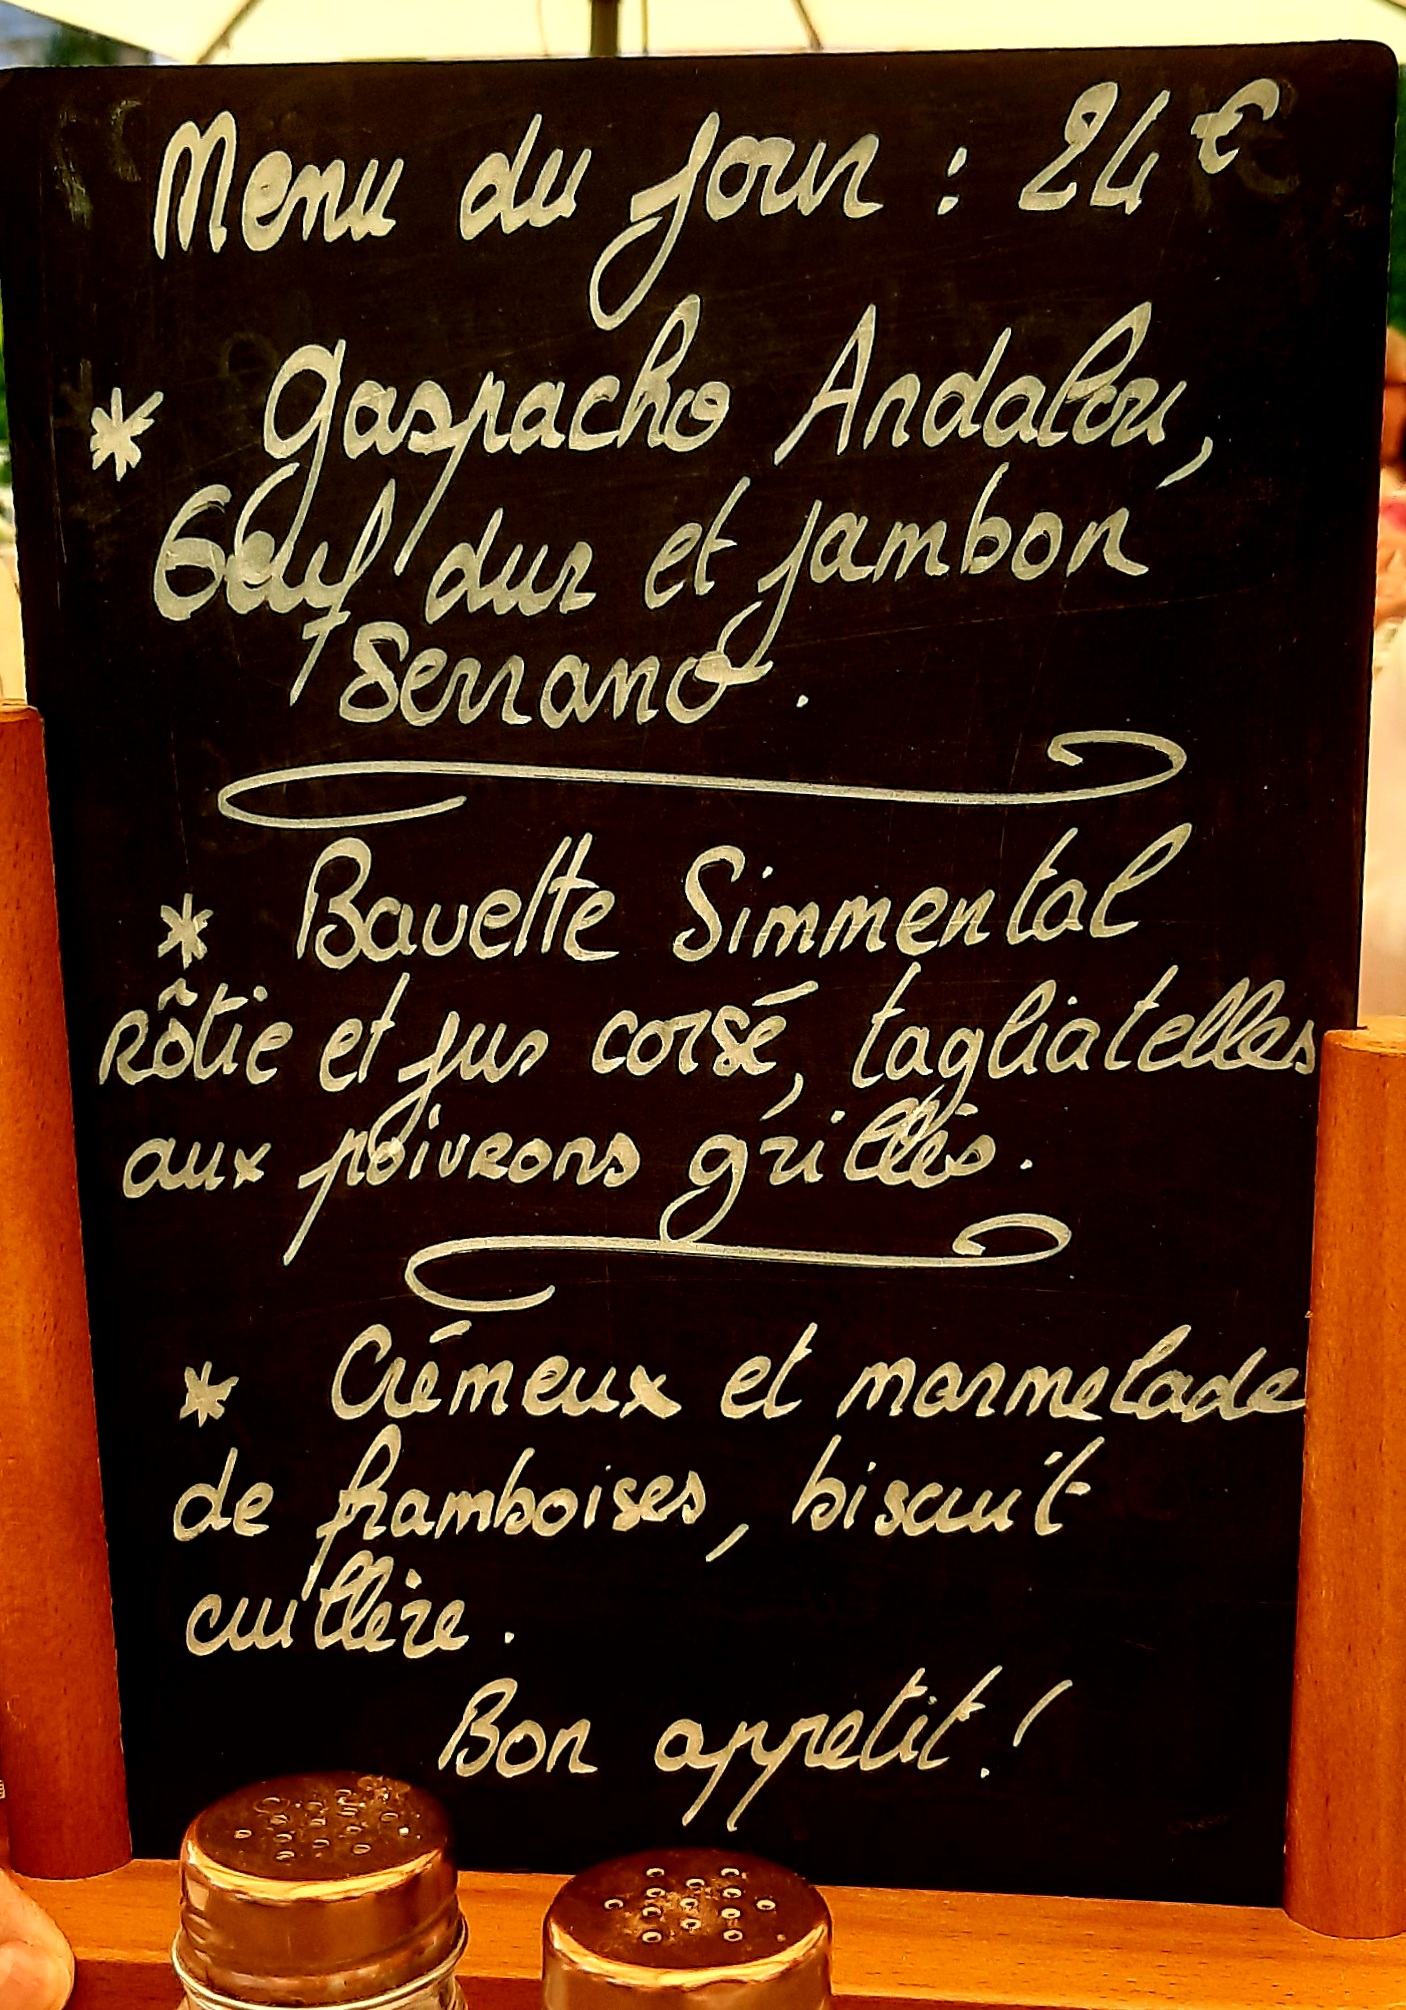 Menu du jour : 24€
* Gaspacho Andalou,
Oeuf dur et jambon
Serrano.
* Bavette Simmental
Rôtie et jus corsé, tagliatelles
aux poivrons grillés.
* Crémeux et marmelade
de framboises, biscuit
cuillère.
Bon appetit !